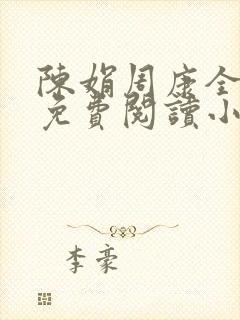 陳娟周康全
免費閱讀小
李豪